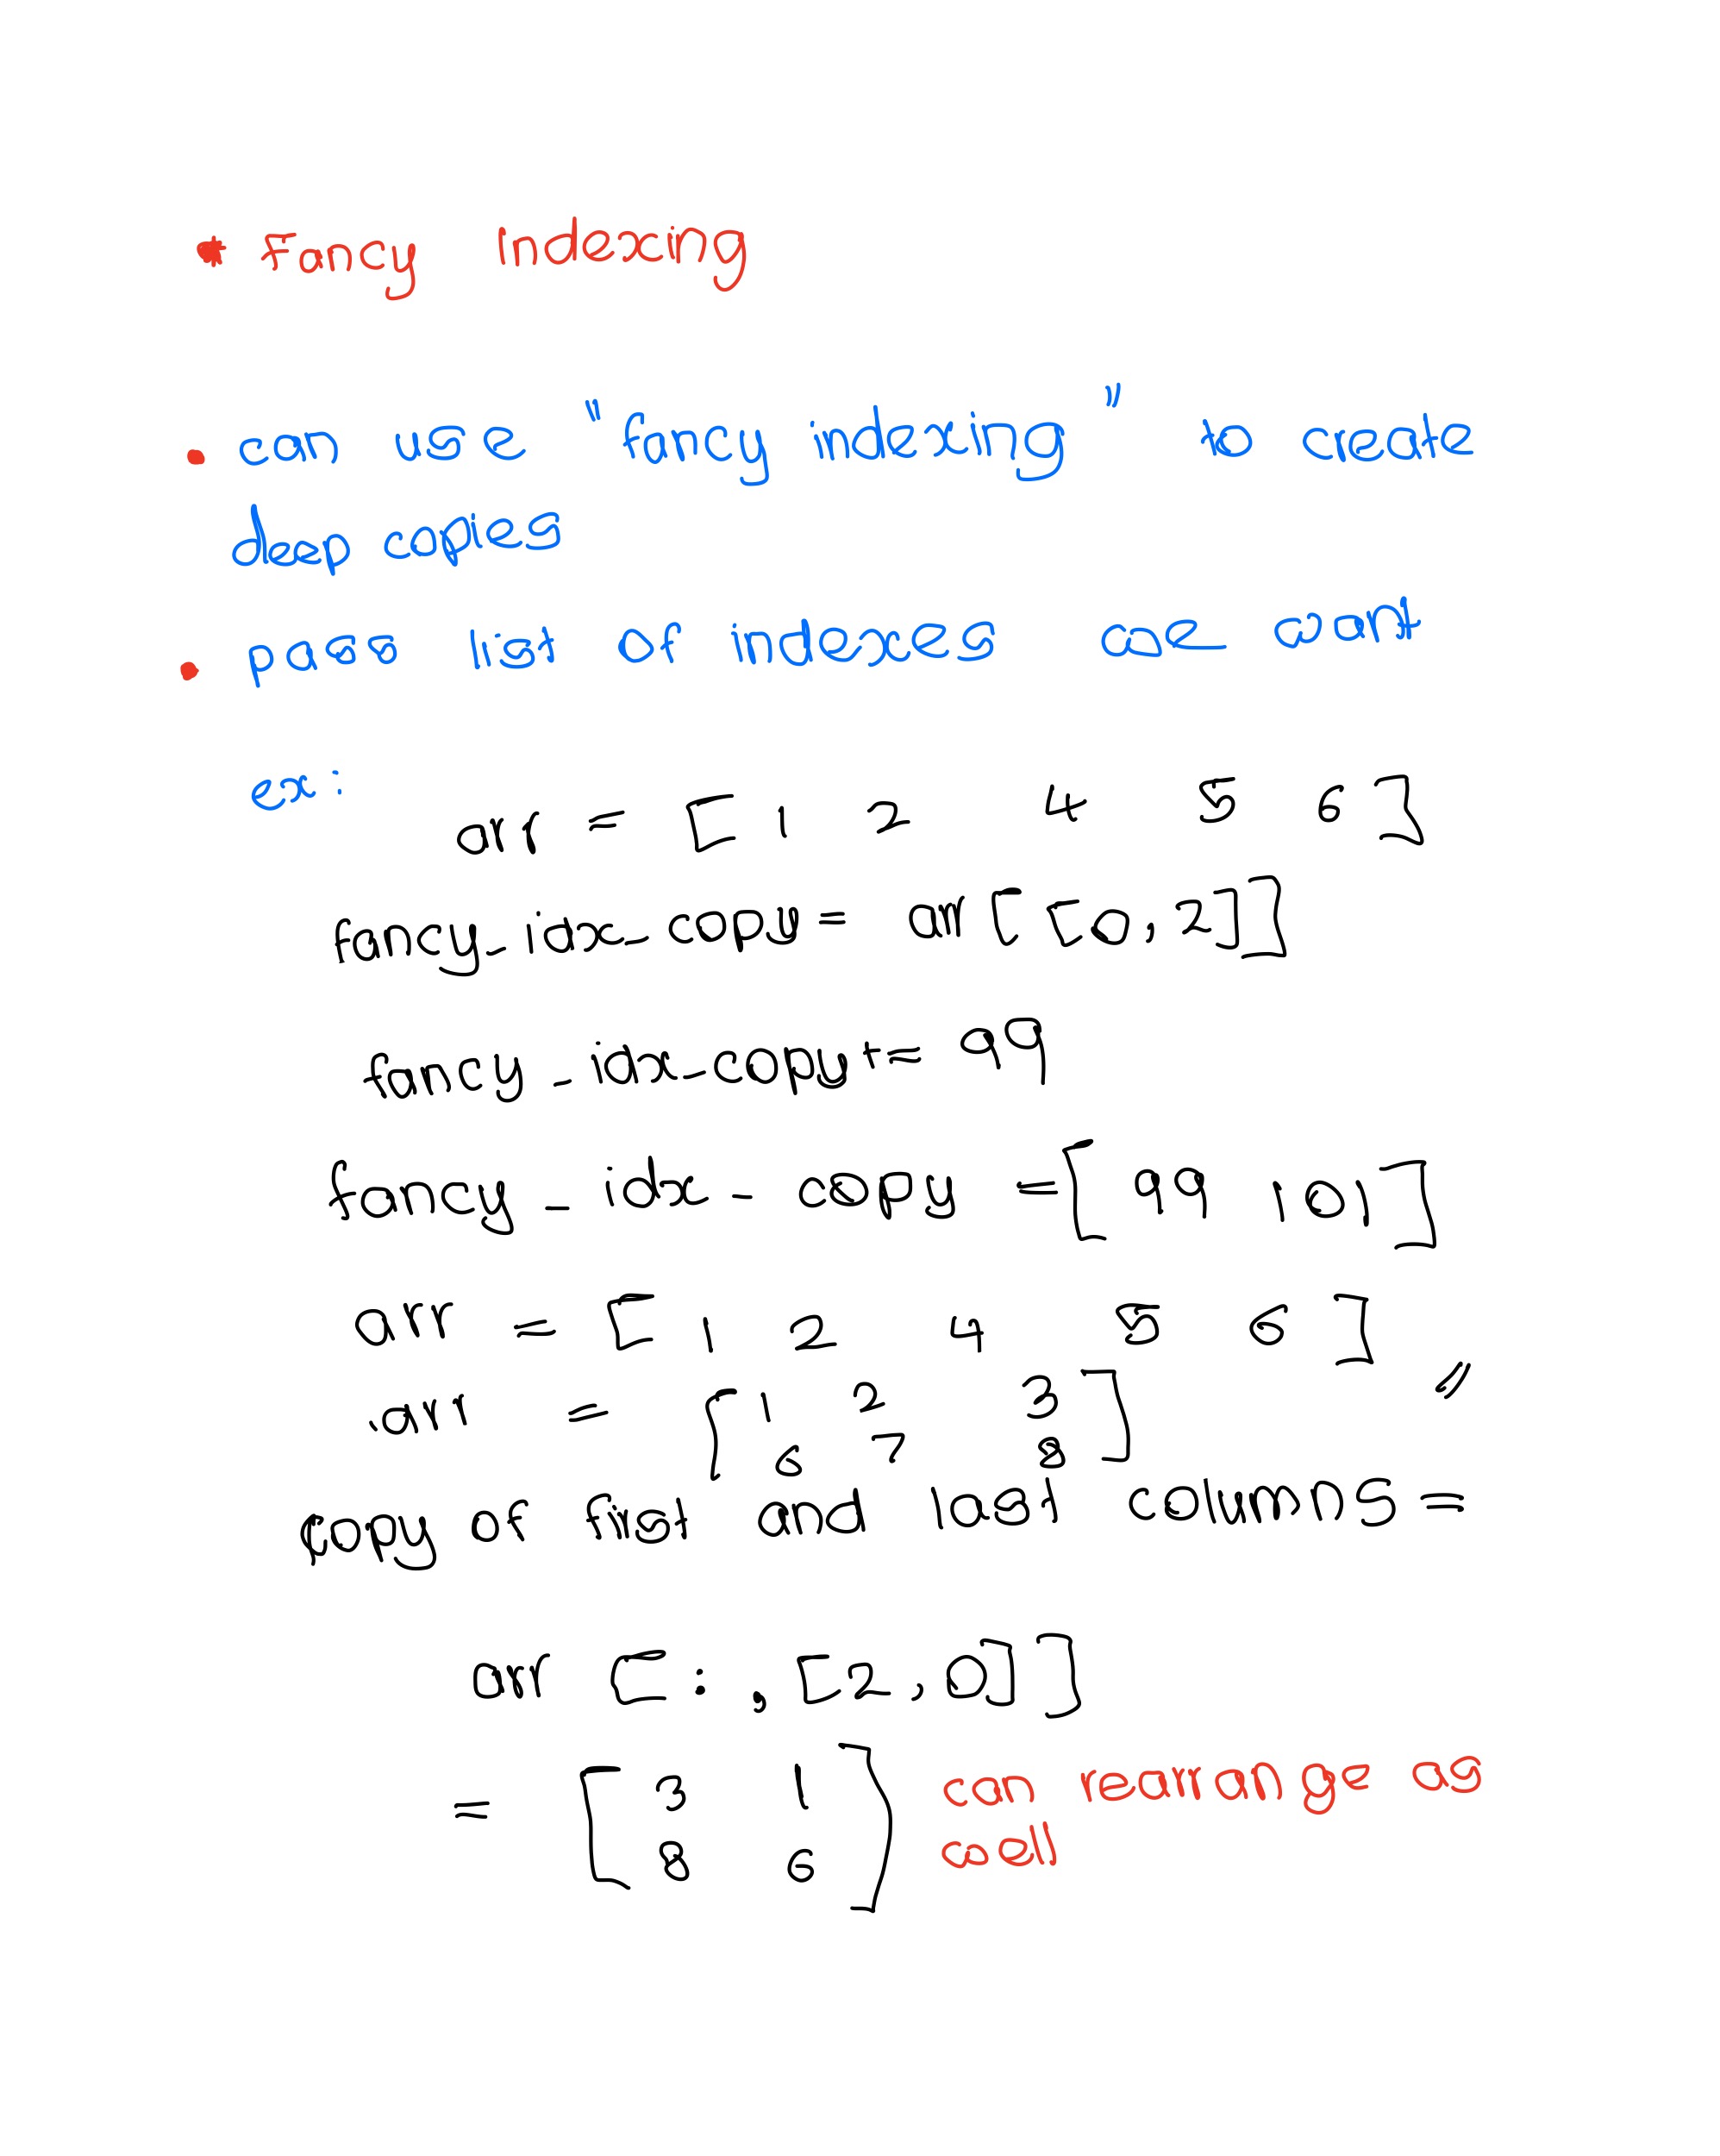 * Fancy Indexing
• can use "fancy indexing" to create
deep copies
• pass list of indexes we want
ex:
arr = [ 1 2 4 5 6 ]
fancy_idx_copy = arr[[0,2]]
fancy_idx_copy += 99
fancy_idx_copy = [ 99 101 ]
arr = [ 1 2 4 5 6 ]
arr = [ 1 2 3 ] "
6 7 8
copy of first and last columns =
arr [: , [2,0]]
= [ 3 1 ] can rearrange as
8 6 well